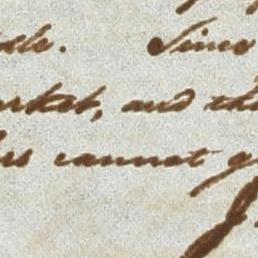 dle. Since
arket, and th
ers cannot g